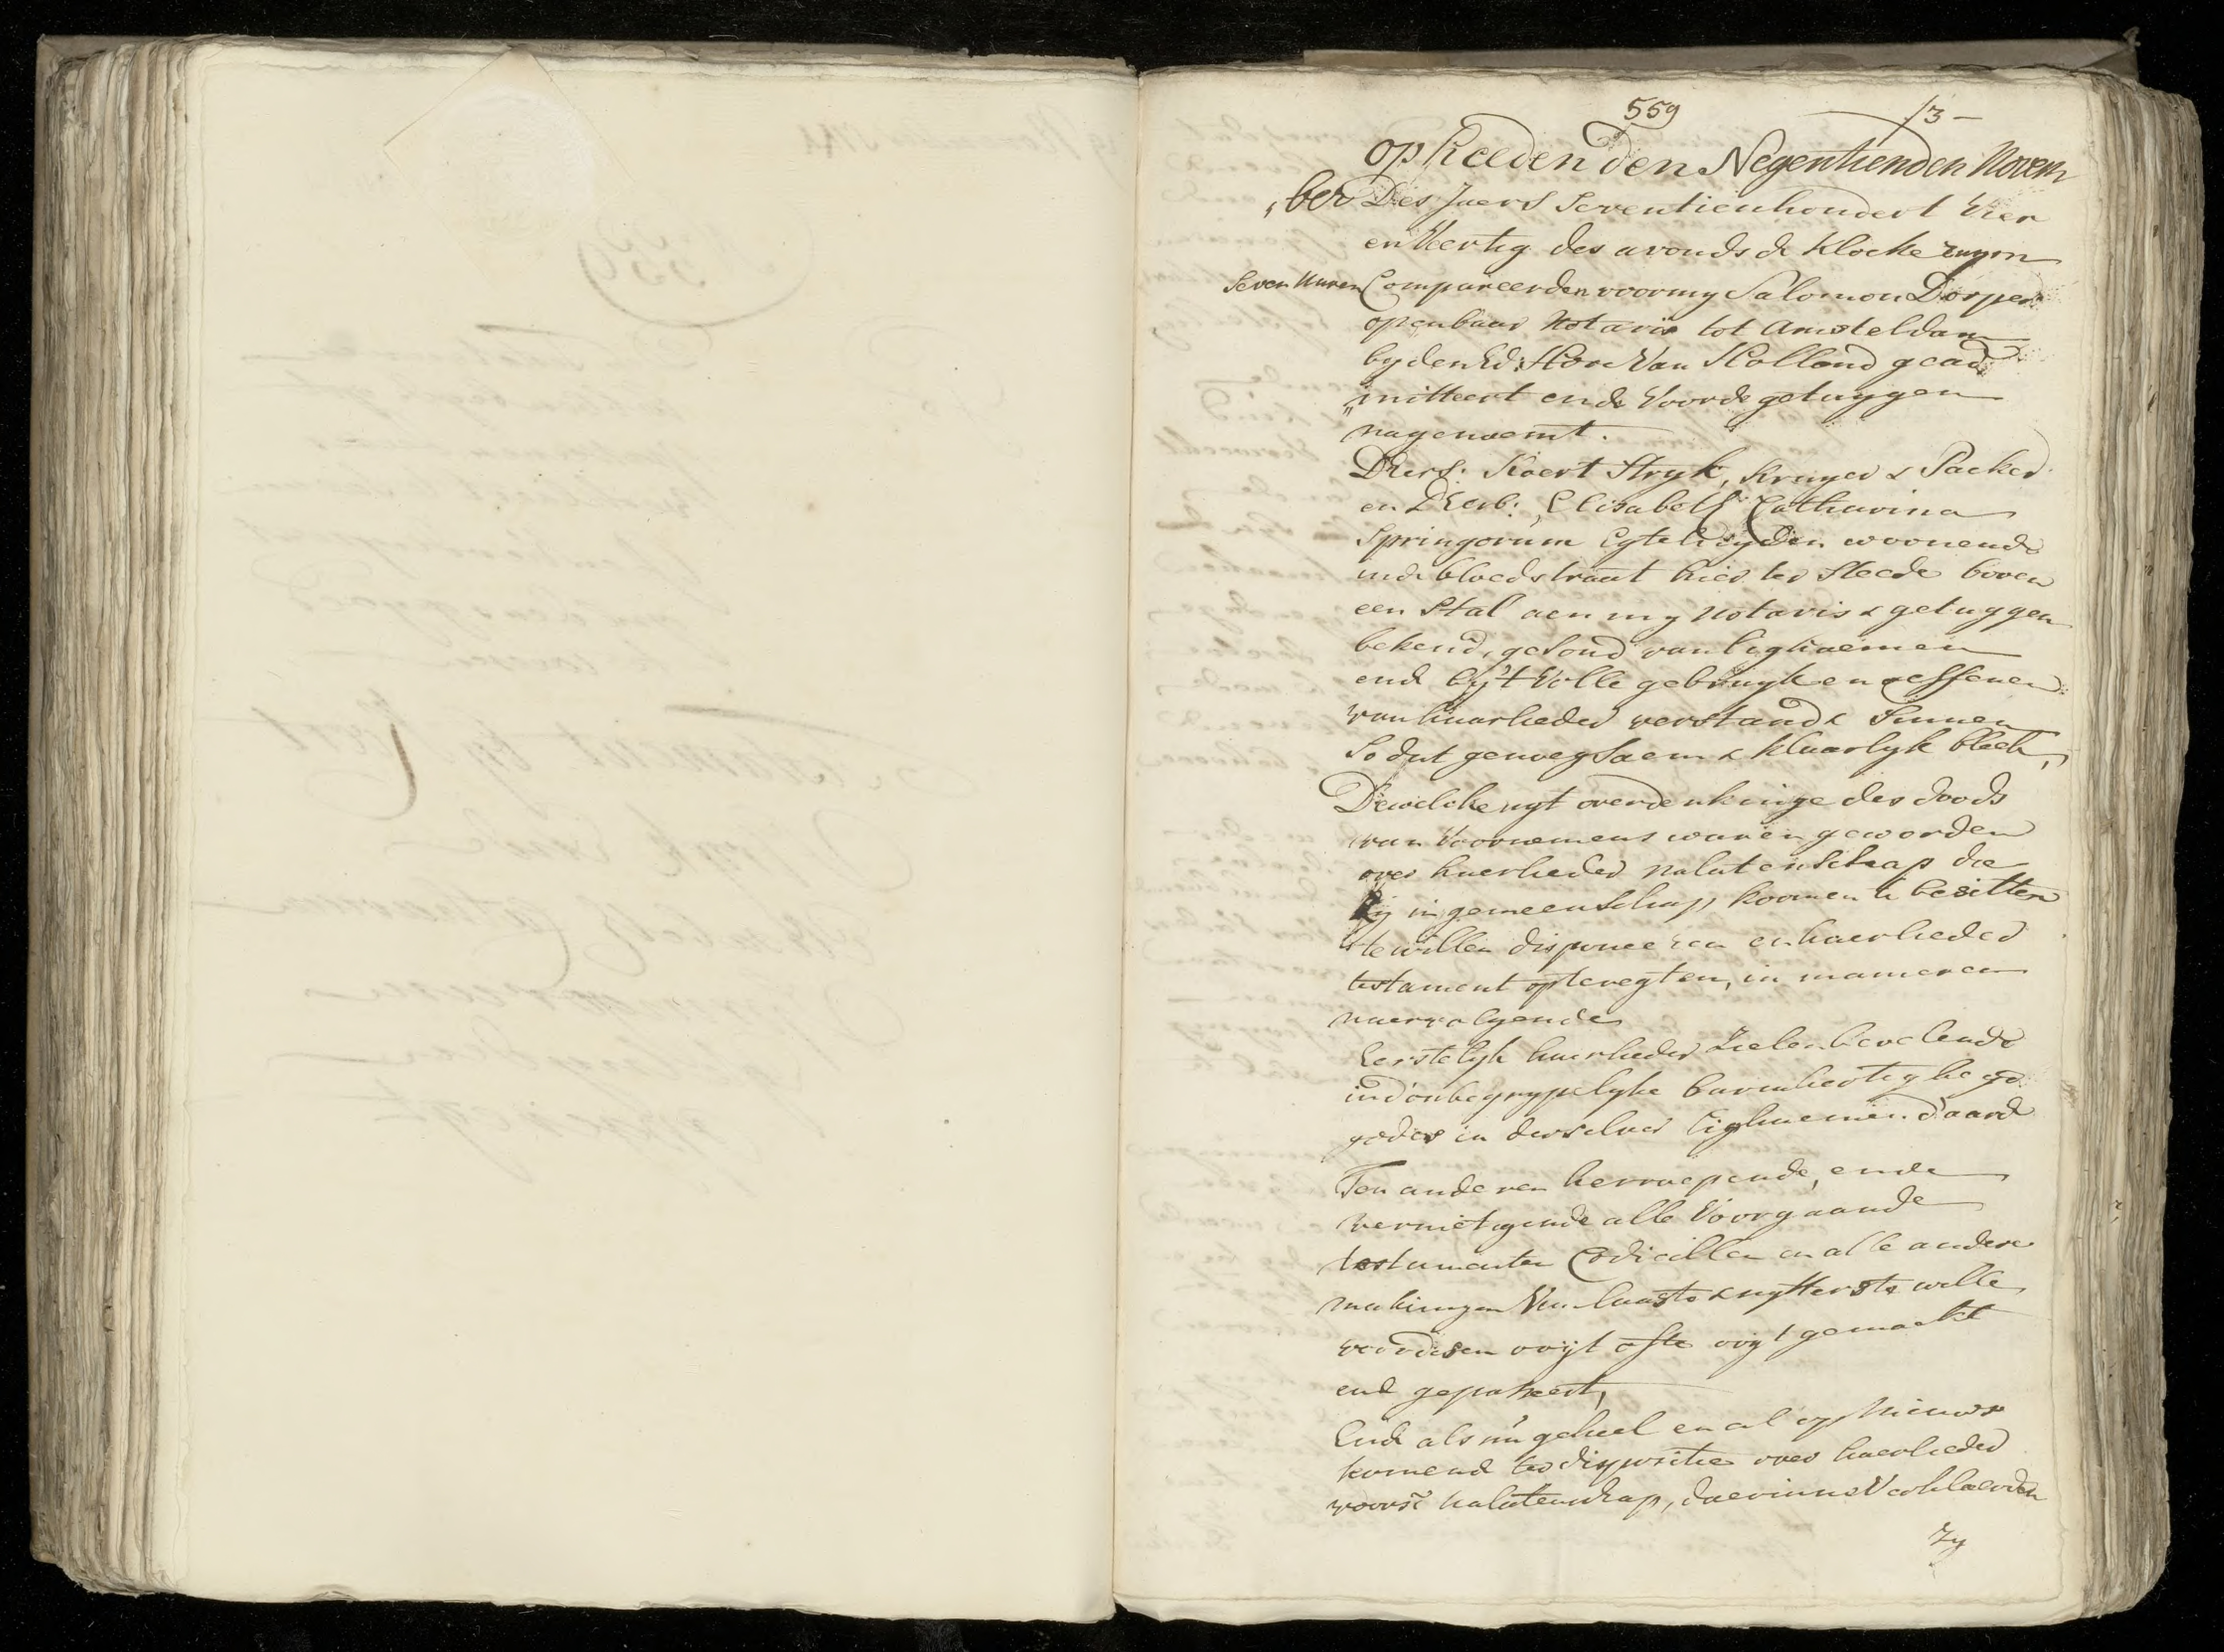 559
13 -
op heeden den Negentienden Novem
„ber Des Jaers Seventienhondert Vier
en Veertig des avonds de klocke
Seven Uuren Compareerden voor my Salomon Dorper
openbaar Notaris tot Amsteldam
by den Ed: Hove Van Holland gead
„mitteert ende Voorde getuygen
nagenoemt.
D'Eers: Koert Stryk, Kruyer & Packer
en D'Eerb:, Elisabeth Catharina
Springorum Egtelieyden woonende
inde bloedstraat hier ter Steede boven
een Stal aen my Notaris & getuygen
bekend, gesond van lighaemen
ende by't Volle gebruyk en oeffenen
van haarlieder verstand & Sinnen
So dat genoegsaem & klaarlyk bleek,
Dewelcke uyt overdenkinge des doods
van Voornemens waren geworden
over haerlieder nalatenschap die
Zy in gemeenschap koomen te besitten
te willen disponeeren en haerlieder
testament opteregten, in manieren
naervolgende
Eerstelyk haerlieder Zielen bevelende
in d'onbegrypelyke barmhertighe
godes en derselver lighaemen d'aarde
Ten anderen herroepende, ende
vernietigende alle Voorgaande
testamenten Codicillen en alle andere
makingen Van laaste & uytterste wille
voordesen ooijt ofte ooyt gemaakt
ende gepasseert,
Ende als nu geheel en al op Nieuws
komende ter dispositie over haerlieder
voors: nalatenschap, daerinne Verklaerden
Zy